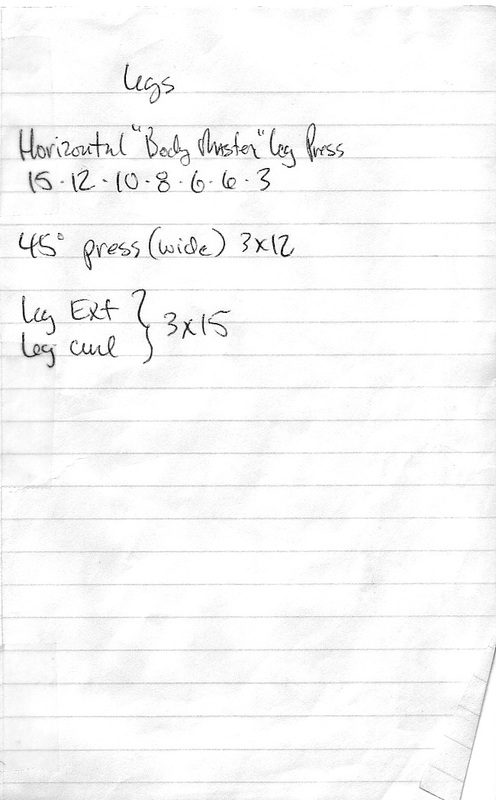 Legs
Horizontal "Body Master" Leg Press
15 · 12 · 10 · 8 · 6 · 6 · 3
45° press (wide) 3x12
Leg Ext } 3x15
Leg curl